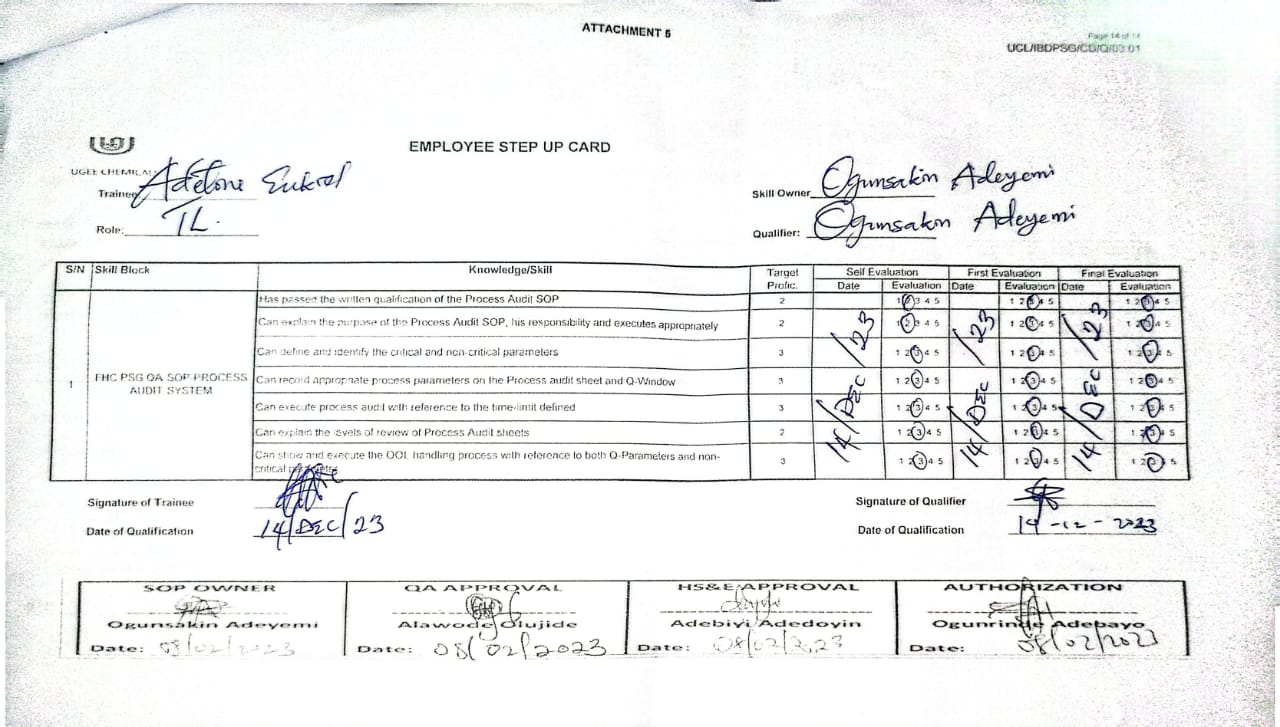 ATTACHMENT 5
Page 14 of 14
UCL/IBDPSG/CD/Q/03:01
EMPLOYEE STEP UP CARD
UGEE CHEMICAL
Trainee
Role: TL.
Skill Owner Ogunsakin Adeyemi
Qualifier: Ogunsakin Adeyemi
S/N Skill Block Knowledge/Skill Target Profic. Self Evaluation First Evaluation Final Evaluation
Date Evaluation Date Evaluation Date Evaluation
1 FHC PSG QA SOP PROCESS AUDIT SYSTEM
Has passed the written qualification of the Process Audit SOP 2 1 2 3 4 5 1 2 3 4 5 1 2 3 4 5
Can explain the purpose of the Process Audit SOP, his responsibility and executes appropriately 2 1 2 3 4 5 1 2 3 4 5 1 2 3 4 5
Can define and identify the critical and non-critical parameters 3 1 2 3 4 5 1 2 3 4 5 1 2 3 4 5
Can record appropriate process parameters on the Process audit sheet and Q-Window 3 1 2 3 4 5 1 2 3 4 5 1 2 3 4 5
Can execute process audit with reference to the time-limit defined 3 1 2 3 4 5 1 2 3 4 5 1 2 3 4 5
Can explain the levels of review of Process Audit sheets 2 1 2 3 4 5 1 2 3 4 5 1 2 3 4 5
Can show and execute the OOL handling process with reference to both Q-Parameters and non- 3 1 2 3 4 5 1 2 3 4 5 1 2 3 4 5
critical parameter
14/DEC/23 14/DEC/23 14/DEC/23
Signature of Trainee
Signature of Qualifier
Date of Qualification 14/DEC/23
Date of Qualification 14-12-2023
SOP OWNER QA APPROVAL HS&E APPROVAL AUTHORIZATION
Ogunsakin Adeyemi Alawode Olujide Adebiyi Adedoyin Ogunrinde Adebayo
Date: 08/02/2023 Date: 08/02/2023 Date: 08/02/2023 Date: 08/02/2023